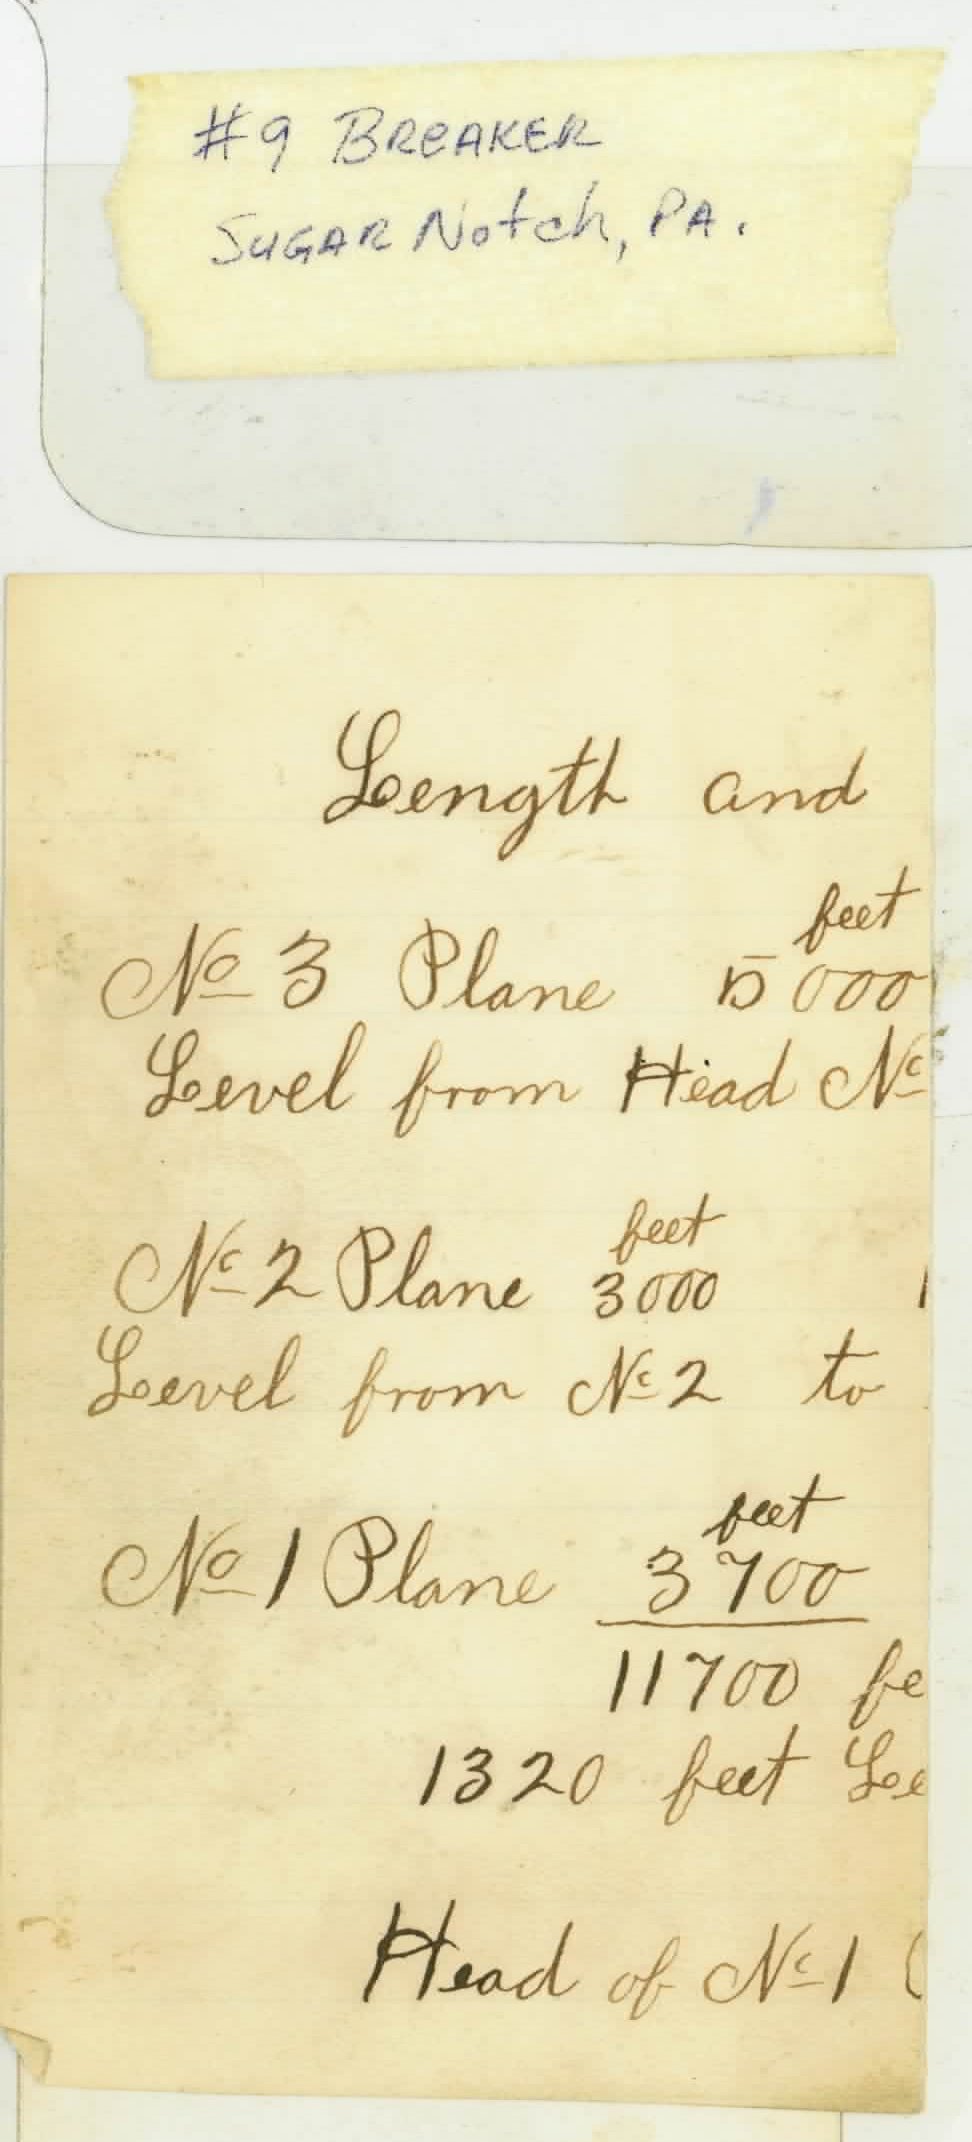 #9 BREAKER
SUGAR Notch, PA.
Length and
feet
No 3 Plane 5000
Level from Head No
feet
No 2 Plane 3000 1
Level from No 2 to
feet
No 1 Plane 3700
11700 fe
1320 feet Le
Head of No 1 (